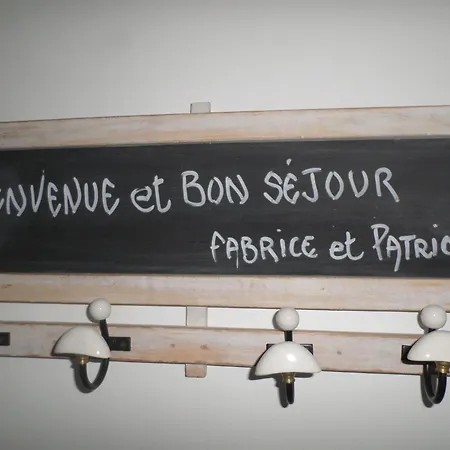 ENVENUE et BON SÉJOUR
FABRICE et PATRIC